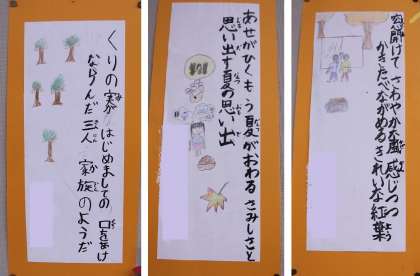 くりの家 はじめましての 口をあけ
ならんだ三人 家族のようだ
あせがひくもう夏がおわるさみしさと
思い出す夏の思い出
窓開けて さわやかな風 感じつつ
かきたべながめる きれいな紅葉